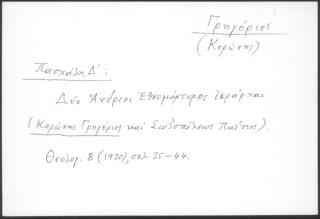 Γρηγόριος
(Κορώνης)
Πασχάλη, Δ´:
Δύο Ἄνδριοι Ἐθνομάρτυρες ἱεράρχαι
(Κορώνης Γρηγόριος καὶ Σωζοπόλεως Παΐσιος).
Θεολογ. 8 (1930), σελ 35-44.